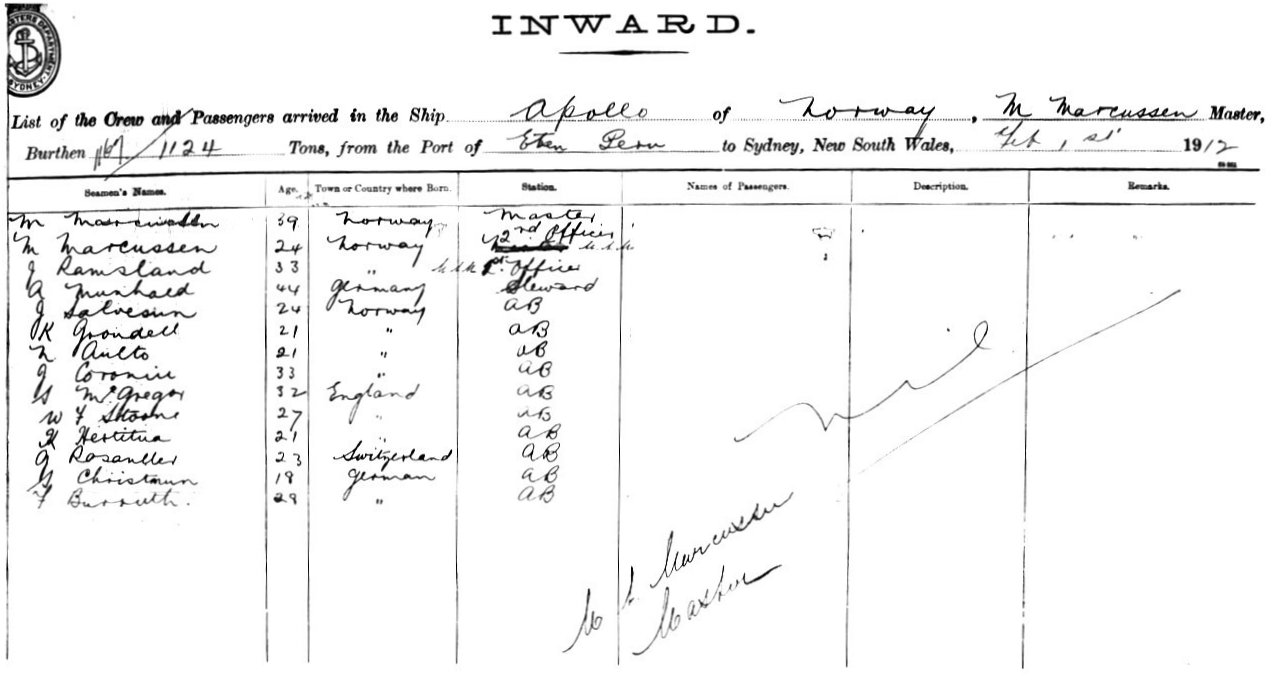 INWARD.
List of the Crew and Passengers arrived in the Ship Apollo of Norway, M Marcussen Master,
Burthen 1167/1124 Tons, from the Port of Eten Peru to Sydney, New South Wales, Feb 1st 1912
Seamen's Names. Age. Town or Country where Born. Station. Names of Passengers. Description. Remarks.
M Marcussen 39 Norway Master
M Marcussen 24 Norway 2nd Officer
J Ramsland 33 " 1st Officer
A 44 Germany Steward
J Salvesen 24 Norway AB
K Grondell 21 " AB
N Aulto 21 " AB
J 33 " AB
G McGregor 32 England AB
W F 27 " AB
K 21 " AB
G 23 Switzerland AB
G 18 German AB
F 29 " AB
nil
M Marcussen
Master